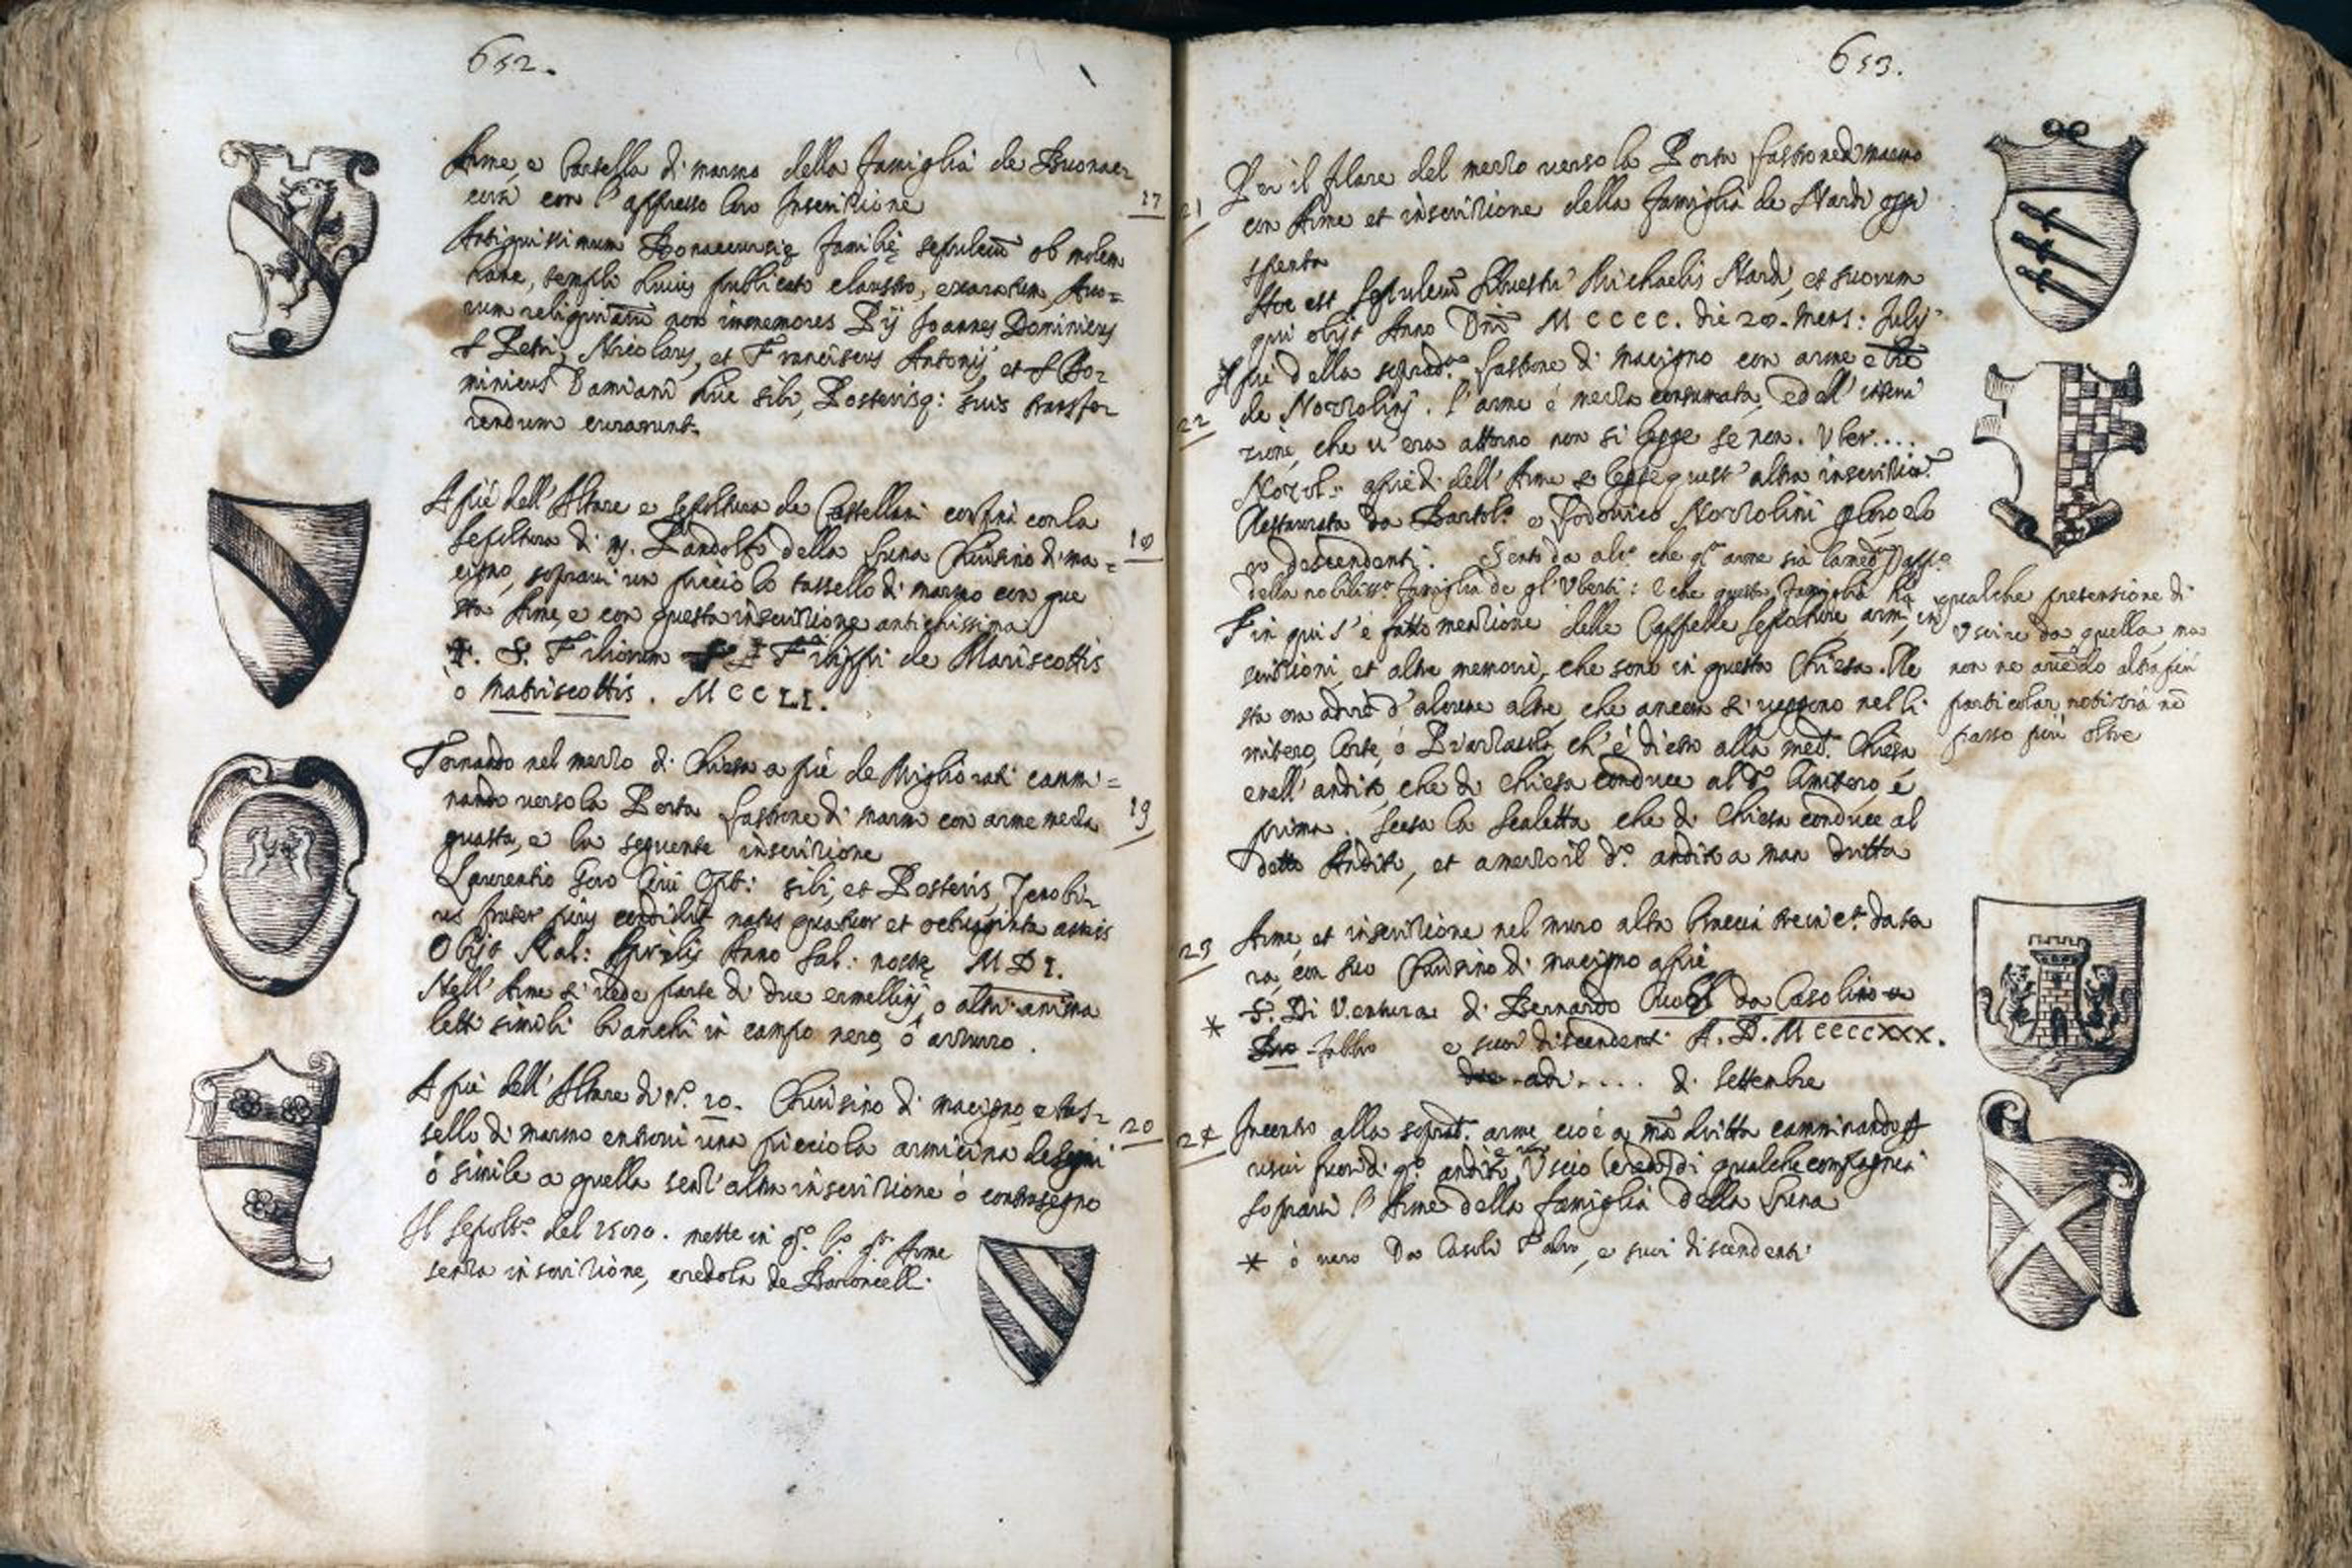 652.
Arme, e Cartella di marmo della famiglia de Buonac
corsi con l'appresso loro Inscrizione
17
Antiquissimum Bonaccursię familię sepulcrū ob molem
hanc, templi huius publicato claustro, exaratum, Avo=
rum religuiarū non immemores Pij Joannes Dominicus
S Petri, Nicolaus, et Franciscus Antonij, et S Do=
minicus Damiani huc sibi, Posterisq: suis transfe
rendum curarunt.
A piè dell'Altare e sepoltura de Castellani confini con la
sepoltura di M. Pandolfo della Luna Chiusino di ma=
18
cigno, sopravi un picciolo tassello di marmo con que
sta Arme, e con questa inscrizione antichissima
S. Filiorum Filippi de Mariscottis
o Matriscottis. MCCLI.
Tornando nel mezzo di Chiesa a piè de Migliorati cammi=
nando verso la Porta Lastrone di marmo con arme mezza
19
guasta, e la seguente inscrizione
sibi, et Posteris, Zenobi=
us frater pius condidit natus quatuor et octuaginta annis
Obijt Kal: Aprilis Anno Sal: nostrę MDI.
Nell'Arme si vede parte di due ermellinj o altri anima
letti simili bianchi in campo nero, ò azzurro.
A piè dell'Altare di N.º 10. Chiusino di macigno, e tas=
20
sello di marmo entrovi una picciola armicina
ò simile a quella senz'altra inscrizione ò contrasegno
Il sepolt.º del mette in q.º l.º q.ta Arme
senza inscrizione, credola de Baroncelli.
653.
Per il filare del mezzo verso la Porta Lastrone di macigno
21
con Arme et inscrizione della famiglia de Nardi oggi
spenta
Hoc est Sepulcrū Silvestri Michaelis Nardi, et suorum
qui obijt Anno Dni MCCCC. die 20. mens: Julij
A piè della soprad.ª Lastrone di macigno con arme
22
de Nozzolinj. l'arme è mezza consumata, ed all'inscri
zione, che v'era attorno non si legge se non. Vber....
Nozol.. a piedi dell'Arme si legge quest'altra inscrizio.ⁿᵉ
Restaurata da Bartol.º e Lodovico Nozzolini p loro e lo
ro descendenti. Sento da alc.º che q.ta arme sia la med.ª
della nobiliss.ª famiglia de gl'Vberti: e che questa famiglia hà qualche pretensione di
uscire da quella, ma
non ne avēdo altra più
particolar notizia nō
passo più oltre
Fin qui s'è fatto menzione delle Cappelle Sepolture armi, in
scrizioni, et altre memorie, che sono in questa Chiesa. Re
sta ora à dire d'alcune altre, che ancora si veggono nel Ci
mitero, Corte, ò Piazzuola, ch'è dietro alla med.ª Chiesa
e nell'andito, che di Chiesa conduce al d.º Cimitero, e
prima. Scesa la scaletta che di Chiesa conduce al
detto Andito, et a mezzo il d.º andito a man dritta
23
Arme, et inscrizione nel muro alta braccia tre in c.ª da ter
ra, con suo Chiusino di macigno a piè
S. Di Ventura di Bernardo da Casolino
* fabbro e suoi discendenti A.D. MCCCCXXX.
adi.... di Settembre
24
Incontro alla soprad.ª arme, cioè a mā dritta camminando
fuor di q.º andito, Uscio (credo) di qualche compagnia
sopravi l'Arme della famiglia della Luna
* ò vero Da Casoli Fabro, e suoi discendenti